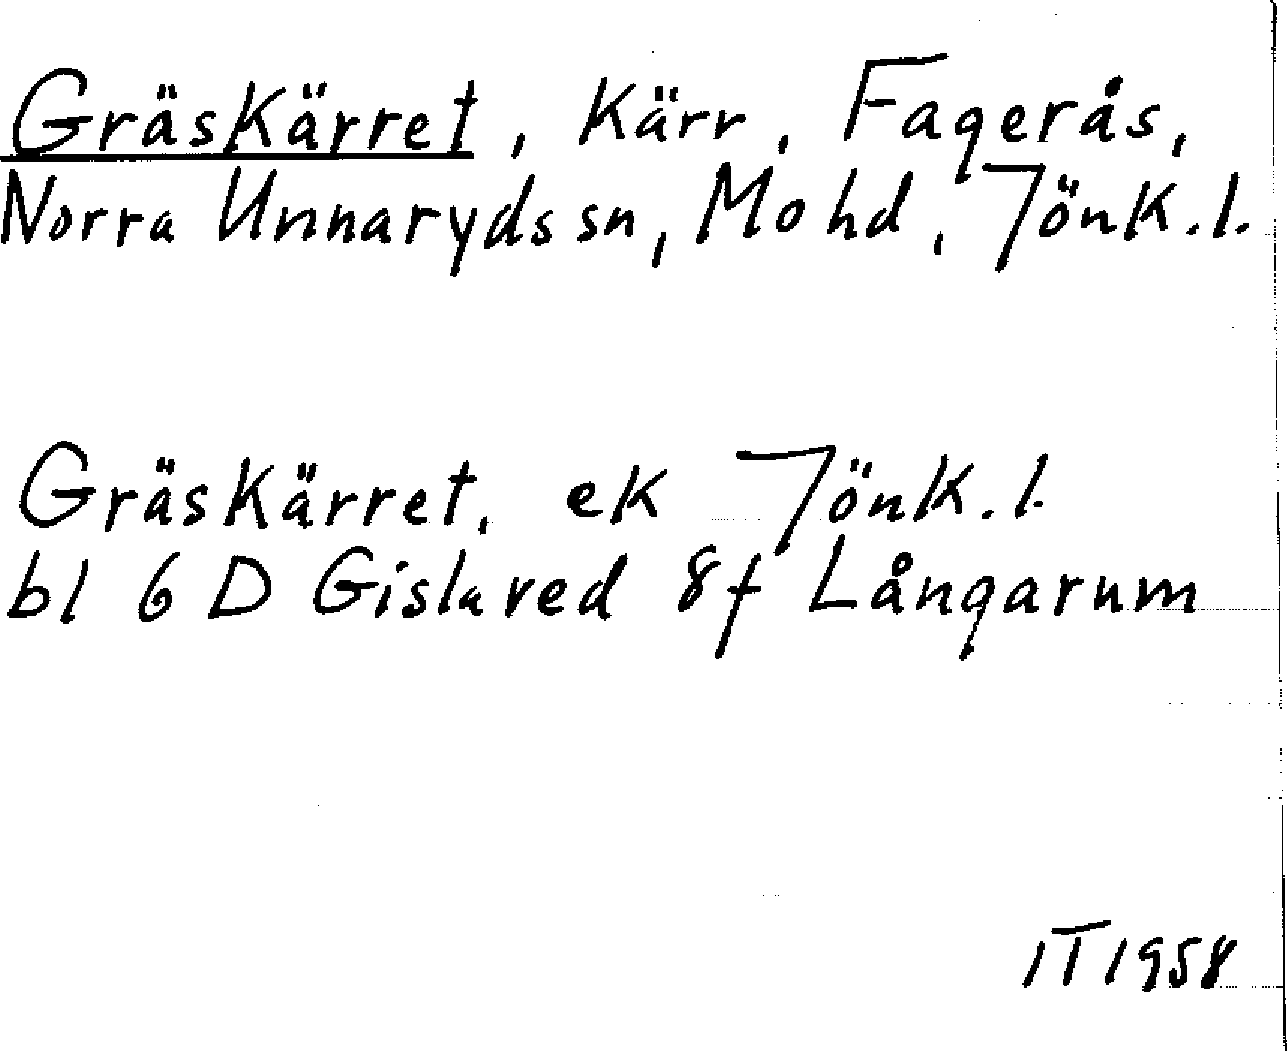 Gräskärret, Kärr, Fagerås,
Norra Unnaryds sn, Mo hd, Jönk.l.
Gräskärret, ek Jönk.l.
bl 6 D Gislaved 8f Långarum
IT 1958